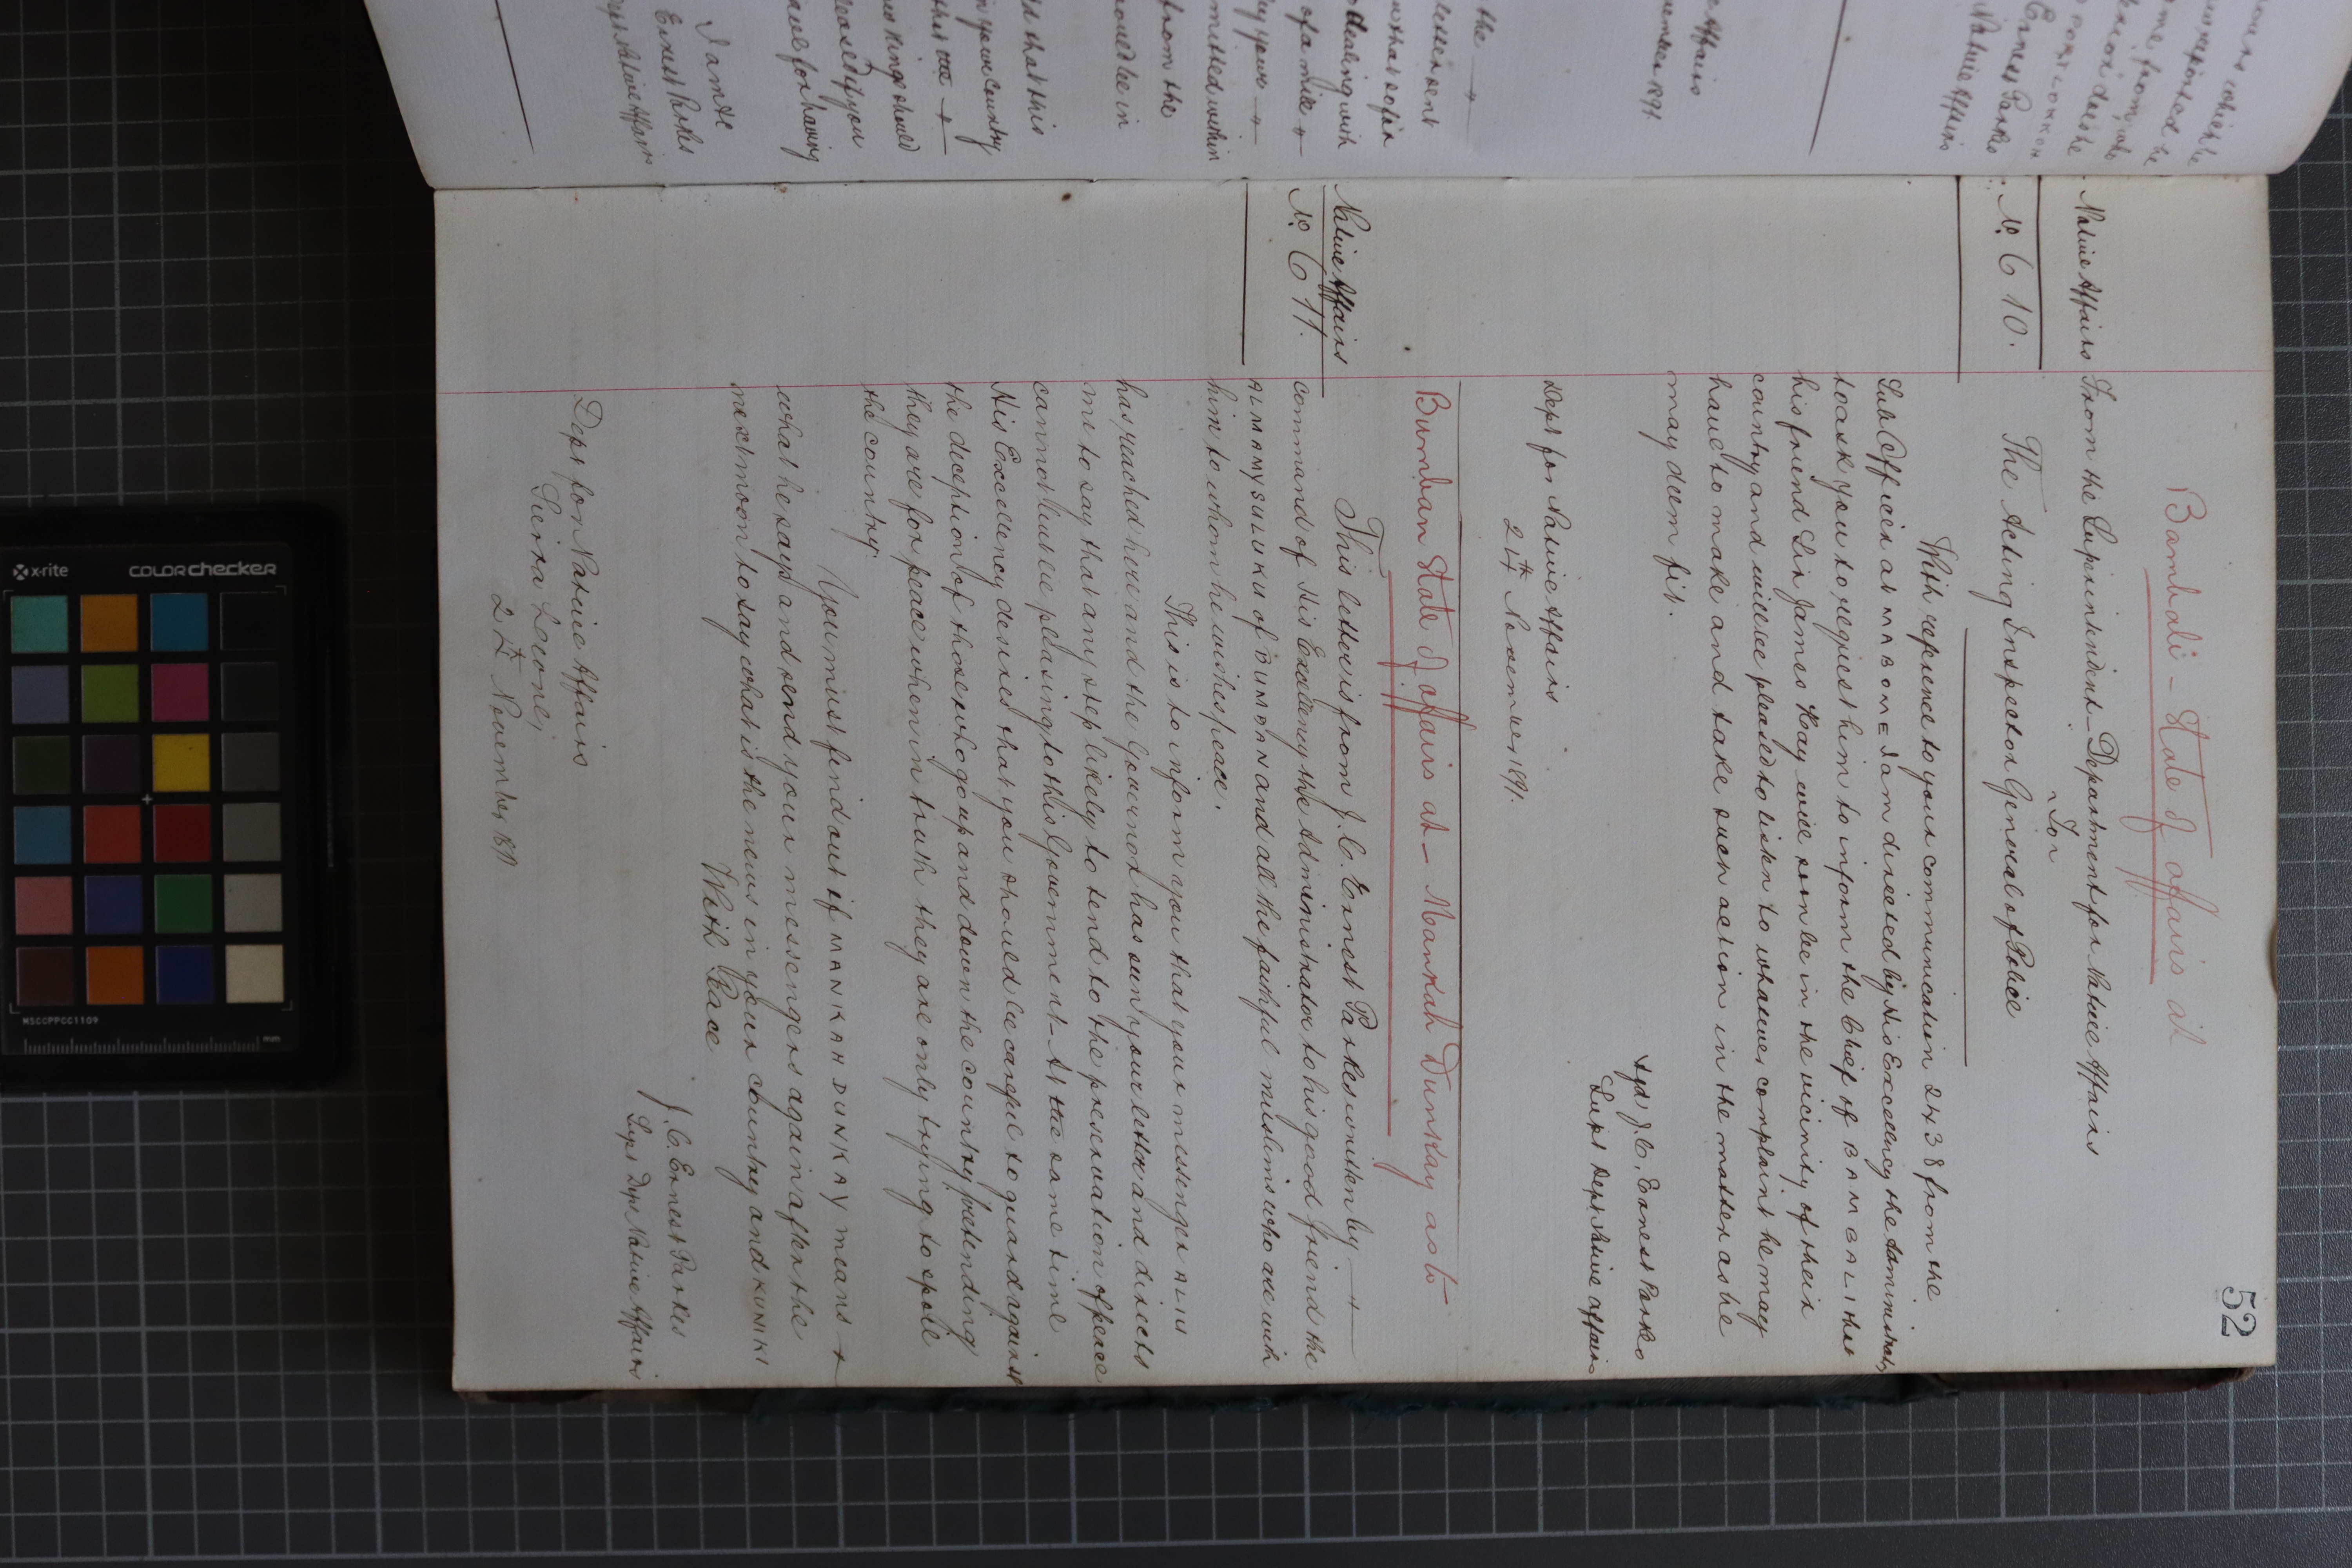 52
Bambali - State of affairs at
Native Affairs
From the Superintendent Department for Native Affairs
To
No. 610.
The Acting Inspector General of Police
With reference to your communication 2438 from the
Sub Officer at MABOME I am directed by His Excellency the Administrator
to ask you to request him to inform the Chief of BAMBALI that
his friend Sir James Hay will soon be in the vicinity of their
country and will be pleased to listen to whatever complaint he may
have to make and take such action in the matter as he
may deem fit.
Sgd J.C. Ernest Parkes
Supt Dept Native Affairs
Dept for Native Affairs
24th November 1891.
Bumban State of affairs at - Mankah Dunkay as to
Native Affairs
No. 611.
This letter is from J.C. Ernest Parkes written by
command of His Excellency the Administrator to his good friend the
ALMAMY SULUKU of BUMBAN and all the faithful muslims who are with
him to whom he wishes peace.
This is to inform you that your messenger ALIU
has reached here and the Governor has seen your letter and directs
me to say that any step likely to tend to the preservation of peace
cannot but be pleasing to this Government - At the same time
His Excellency desires that you should be careful to guard against
the deception of those who go up and down the country pretending
they are for peace when in truth they are only trying to spoil
the country
You must find out if MANKAH DUNKAY means
what he says and send your messengers again after the
next moon to say what is the news in your country and KUNIKI
With Peace
J.C. Ernest Parkes
Supt Dept Native Affairs
Dept for Native Affairs
Sierra Leone,
24th November, 91
the
letter sent
dealing with
of a mile
by your
mitted within
from the
would be in
that this
in your country
kings should
this the
you
for having
I am &c
Ernest Parkes
Dept Native Affairs
Affairs
1891.
Ernest Parkes
Native Affairs
x-rite
colorchecker
MSCCPPCC1109
mm